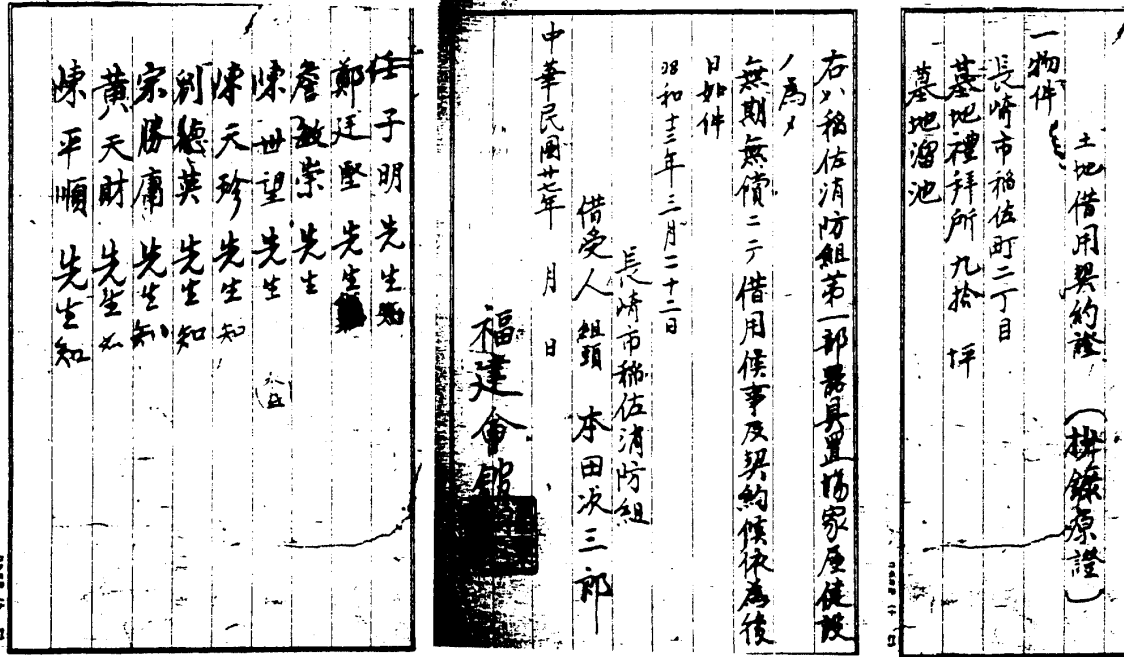 土地借用契約證 (抄錄原證)
一物件
長崎市稲佐町二丁目
墓地禮拜所 九拾 坪
墓地溜池
右ハ稲佐消防組第一部器具置場家屋建設
ノ為メ
無期無償ニテ借用候事及契約候依為後
日如件
昭和十三年三月二十二日
長崎市稲佐消防組
借受人 組頭 本田次三郎
中華民國廿七年 月 日
福建會館
任子明先生知
鄭廷堅先生
詹敏崇先生
陳世望先生
陳天珍先生知
劉德英先生知
宗勝庸先生知
黃天財先生
陳平順先生知